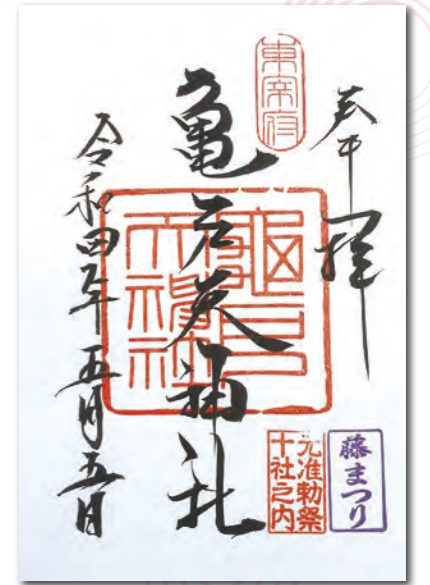 奉拝
東宰府
亀戸天神社
令和四年五月五日
藤まつり
元准勅祭
十社之内